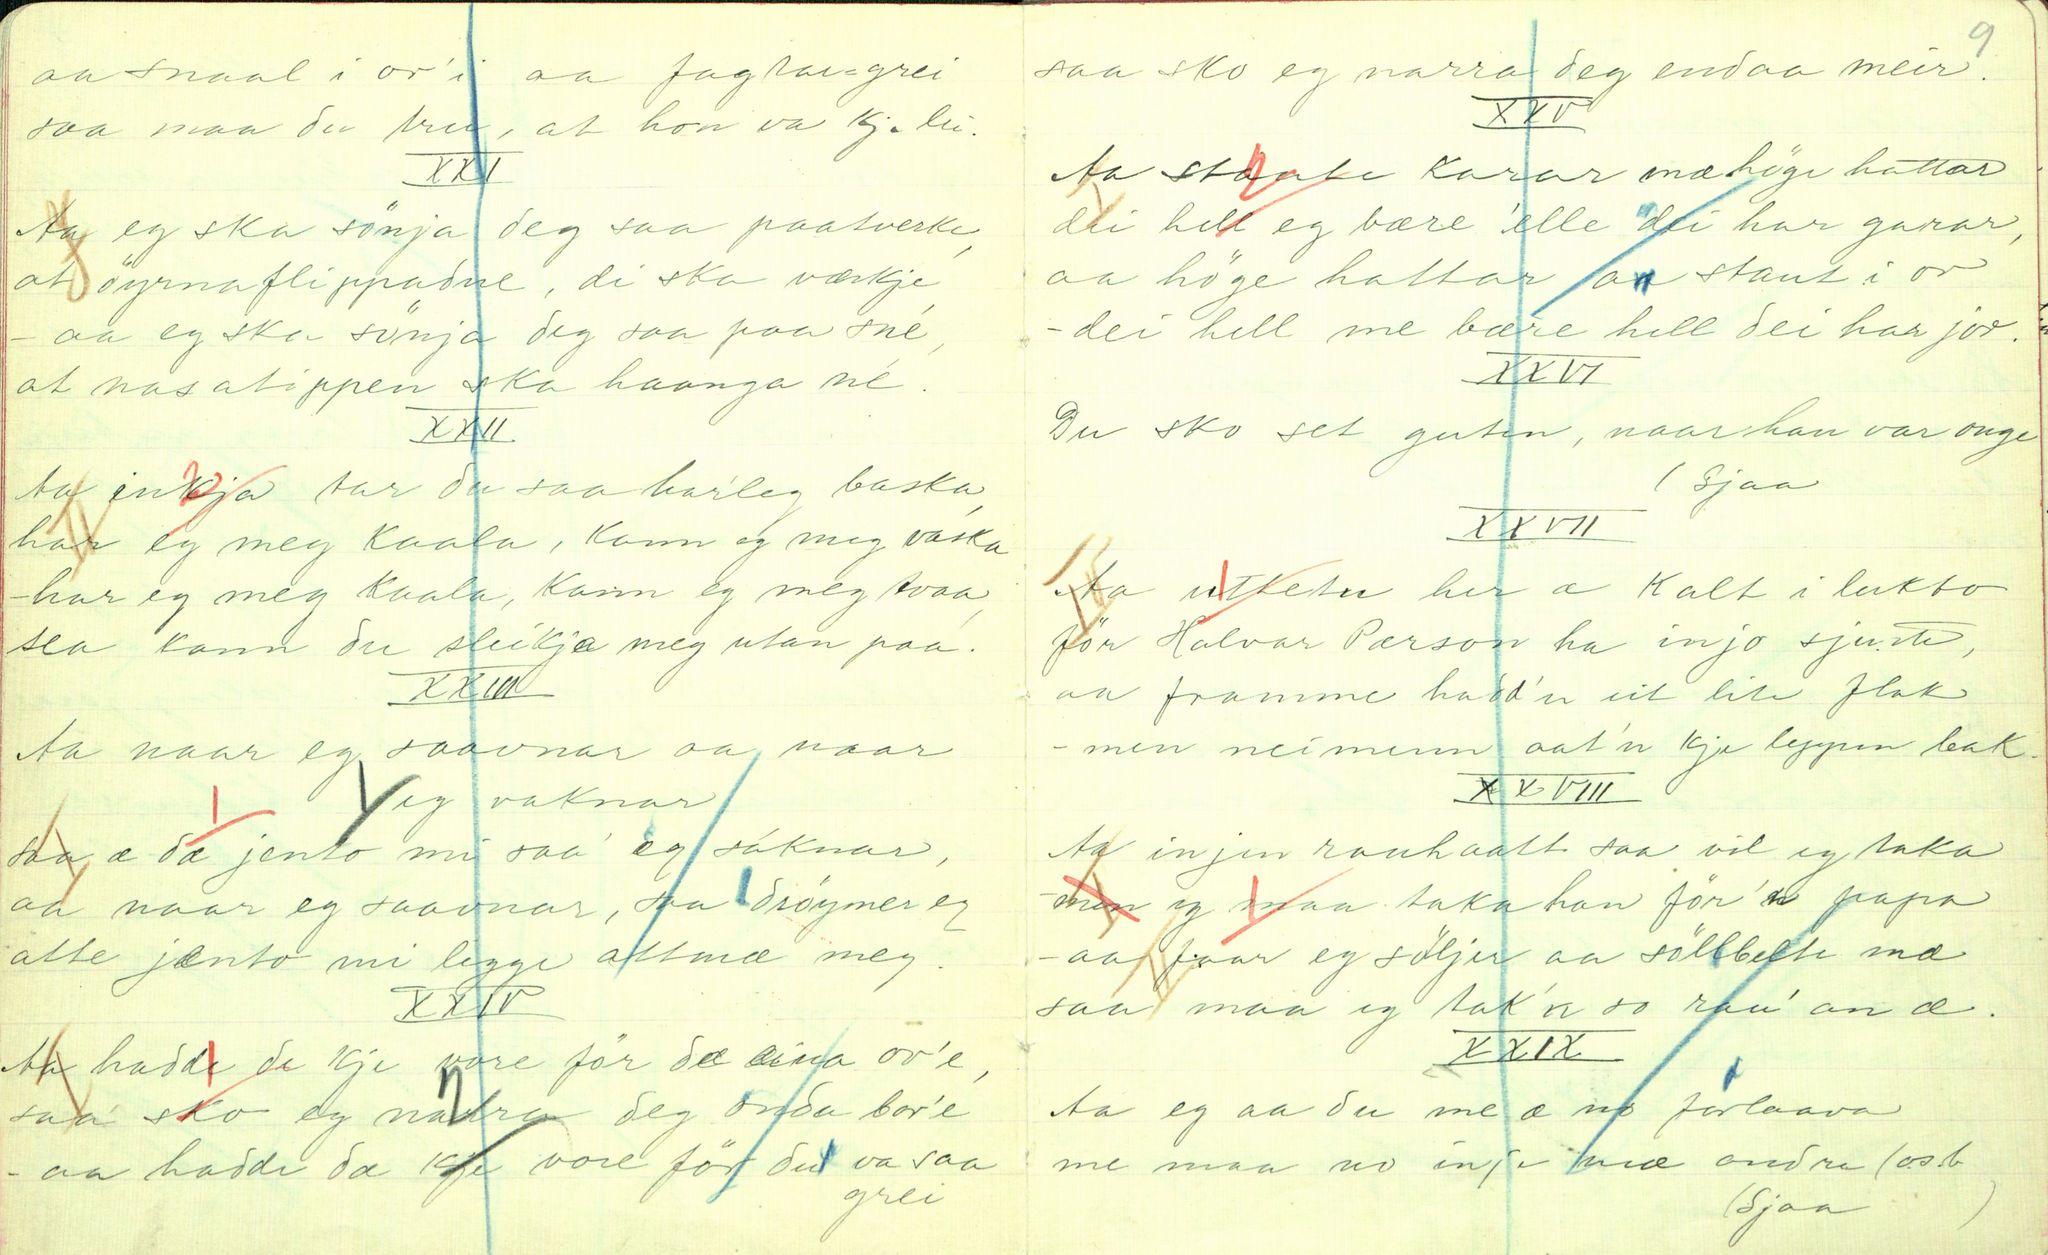 aa snaal i or'i aa fagtau=grei
saa maa du tru, at hon va kje lei.
XXI
Aa eg ska sönja deg saa paatverke,
at öyrnaflippadne, di ska værkje
- aa eg ska sönja deg saa paa sné,
at nasatippen ska haanga né.
XXII
Aa inkja tar du saa har'leg baska,
har eg meg kaala, kann eg meg vaska
- har eg meg kaala, kann eg meg tvaa,
sea kann du sleikja meg utan paa.
XXIII
Aa naar eg saavnar aa naar
eg vaknar
saa æ dæ jento mi saa eg saknar,
aa naar eg saavnar, saa dröymer eg
atte jento mi legge attmæ meg.
XXIV
Aa hadde de kje vore för dæ eina or'e,
saa sko eg narra deg onda bor'e
- aa hadde dæ kje vore för du va saa
grei
9
saa sko eg narra deg endaa meir.
XXV
Aa staute karar mæ höge hattar
dei hell eg bære 'elle dei har garar,
aa höge hattar aa staut i or
- dei hell me bære hell dei har jor.
XXVI
Du sko set guten, naar han var onge
(Sjaa
XXVII
Aa uttete her æ kalt i lukto
för Halvar Pærson ha injo sjuste,
aa framme hadd'n eit lite flak
- men neimenn aat'n kje leppen bak.
XXVIII
Aa injen rauhaatt saa vil eg taka
- men eg maa taka han för'n papa
- aa faar eg söljer aa söllbelte mæ
saa maa eg tak'n so rau' an æ.
XXIX
Aa eg aa du me æ no forlaava
me maa no inje mæ andre (osb
(Sjaa )